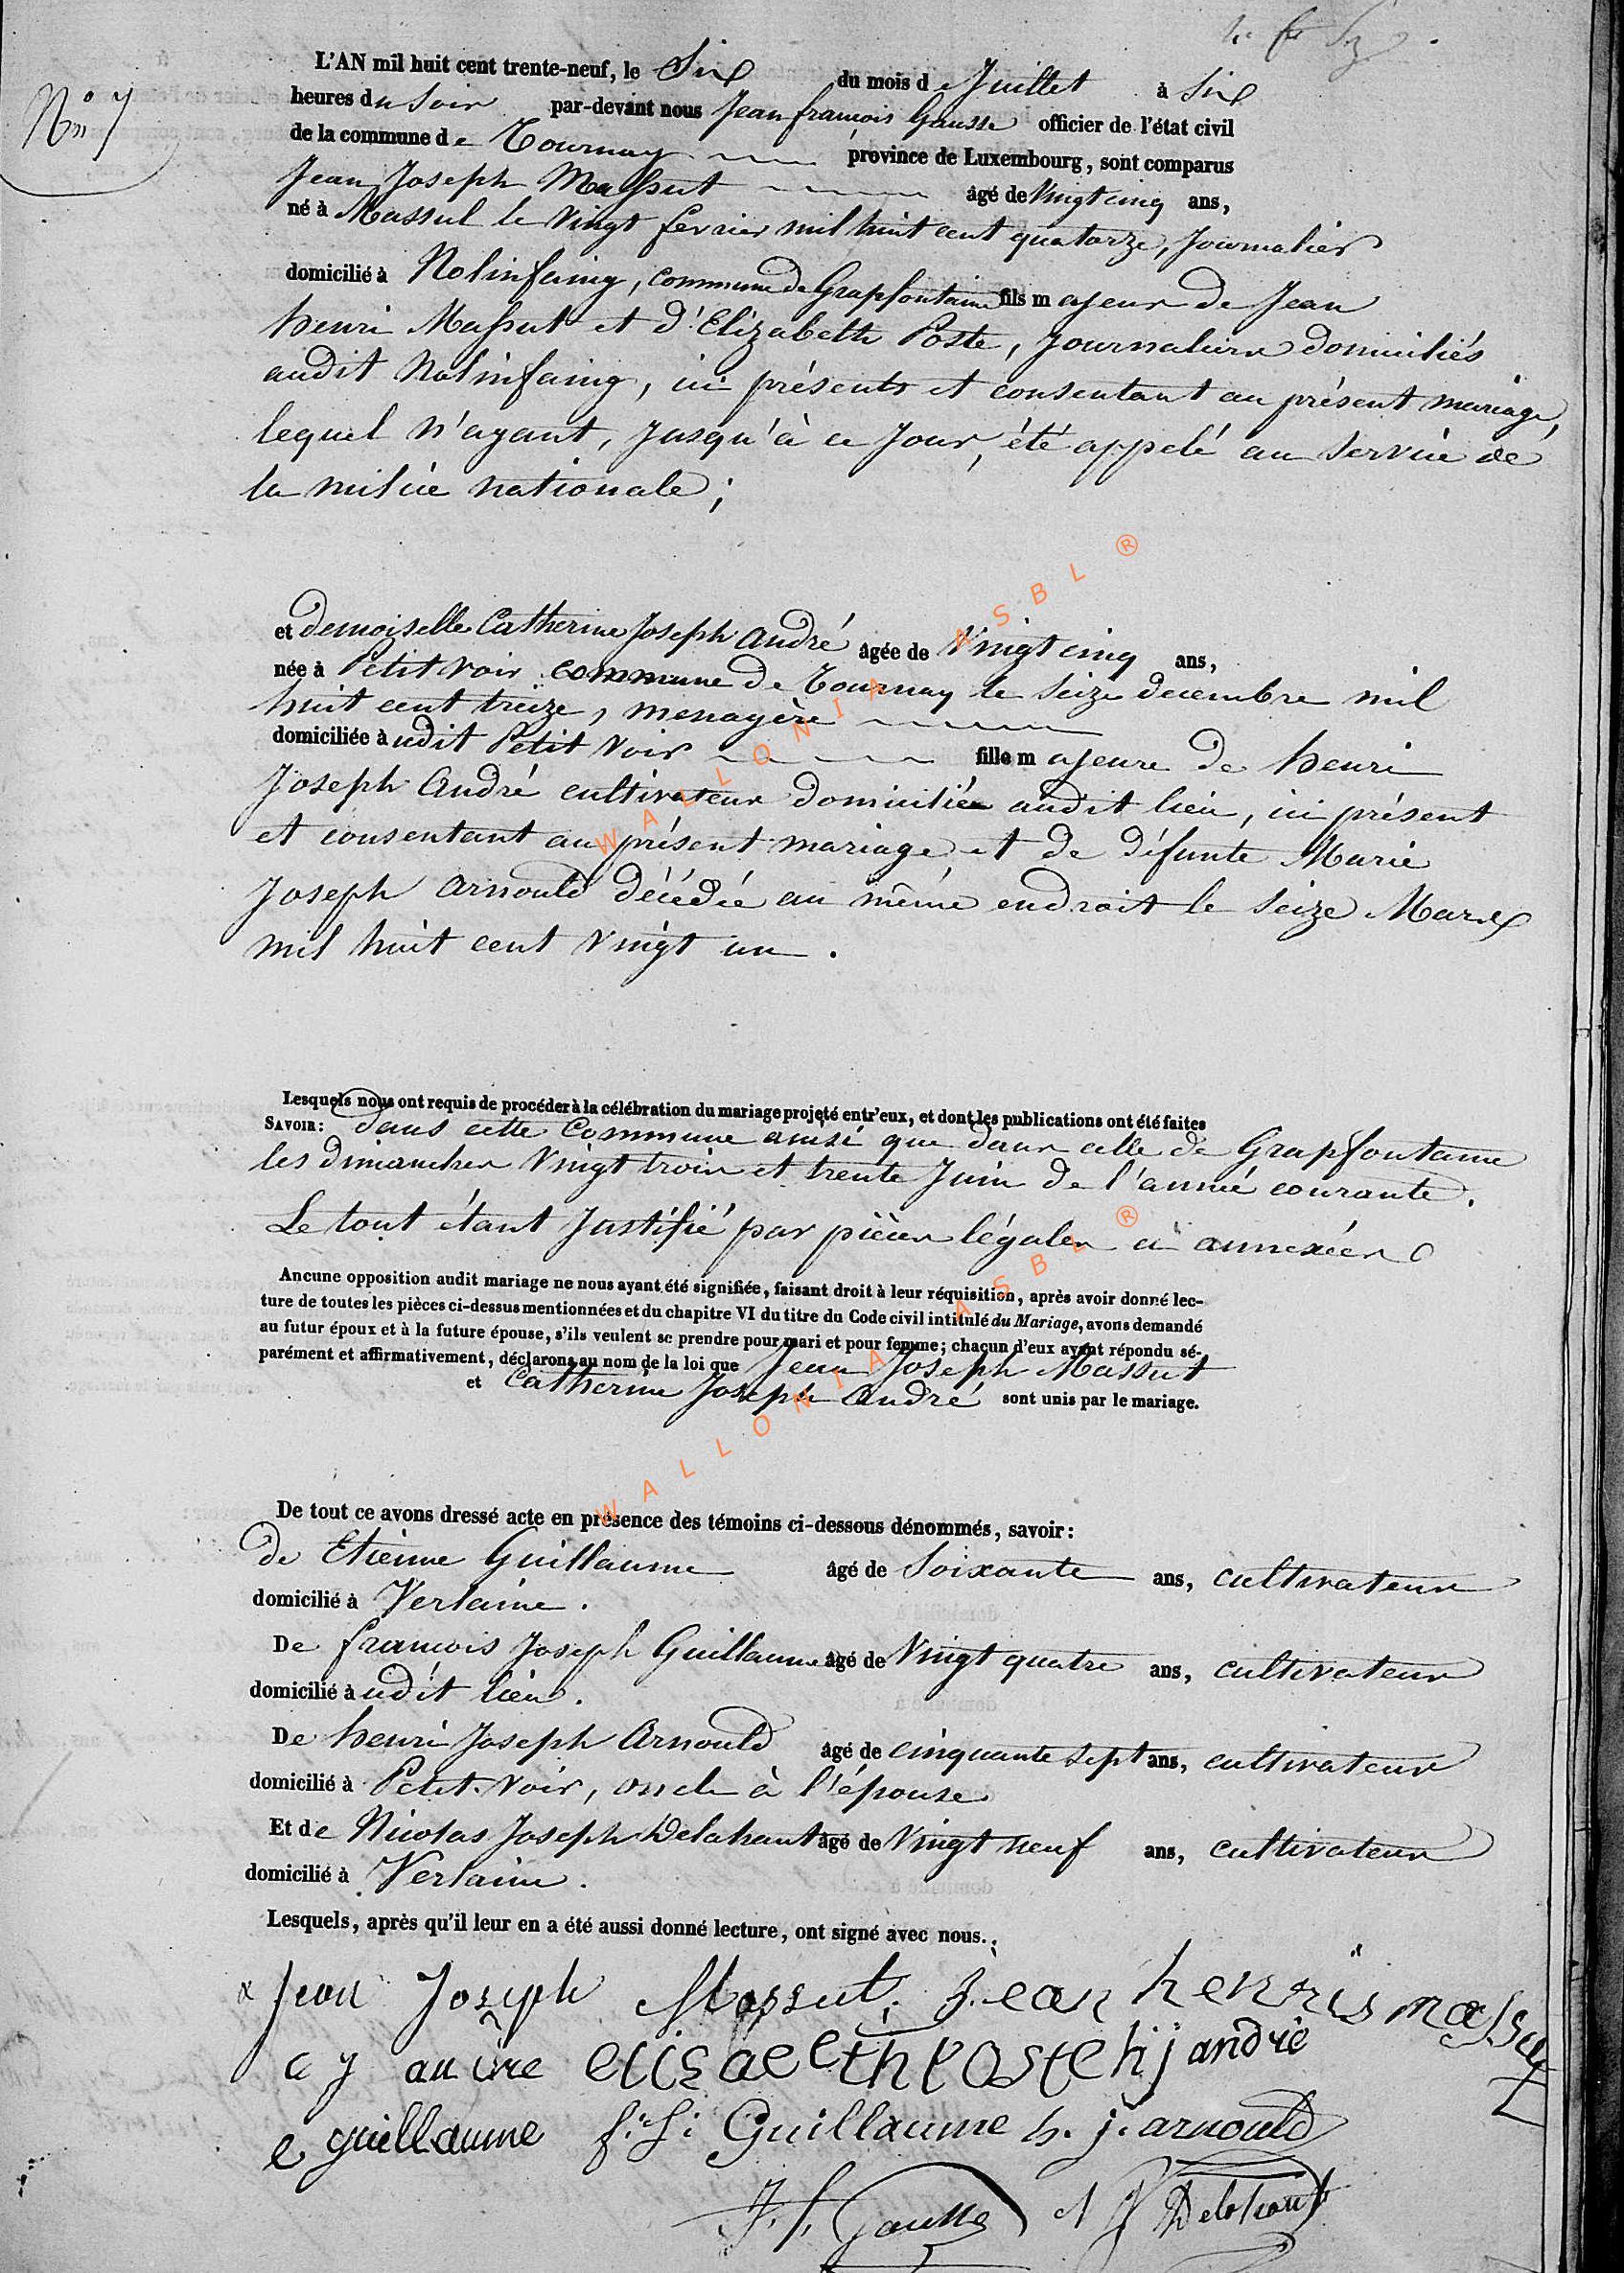 N° 7
L'AN mil huit cent trente-neuf, le Six du mois de Juillet à Six
heures du Soir par-devant nous Jean françois Gausse officier de l'état civil
de la commune de Tournay province de Luxembourg, sont comparus
Jean Joseph Massut âgé de Vingt cinq ans,
né à Massul le Vingt fevrier mil huit cent quatorze, Journalier
domicilié à Nolinfaing, commune de Grapfontaine fils majeur de Jean
henri Massut et d'Elizabeth Poste, Journaliers domiciliés
audit Nolinfaing, ici présents et consentant au présent mariage,
lequel n'ayant, jusqu'à ce Jour, été appelé au Service de
la milice nationale ;
et demoiselle Catherine Joseph André âgée de Vingt cinq ans,
née à Petit voir commune de Tournay le Seize decembre mil
huit cent treize, menagère
domiciliée audit Petit Voir fille majeure de henri
Joseph André cultivateur domicilié audit lieu, ici présent
et consentant au présent mariage et de défunte Marie
Joseph Arnould décédée au même endroit le Seize Mars
mil huit cent Vingt un .
Lesquels nous ont requis de procéder à la célébration du mariage projeté entr'eux, et dont les publications ont été faites
SAVOIR: dans cette Commune ainsi que dans celle de Grapfontaine
les dimanches Vingt trois et trente Juin de l'année courante.
Le tout étant Justifié par pièces légales ci annexées
Aucune opposition audit mariage ne nous ayant été signifiée, faisant droit à leur réquisition, après avoir donné lec-
ture de toutes les pièces ci-dessus mentionnées et du chapitre VI du titre du Code civil intitulé du Mariage, avons demandé
au futur époux et à la future épouse, s'ils veulent se prendre pour mari et pour femme; chacun d'eux ayant répondu sé-
parément et affirmativement, déclarons au nom de la loi que Jean Joseph Massut
et Catherine Joseph André sont unis par le mariage.
De tout ce avons dressé acte en présence des témoins ci-dessous dénommés, savoir:
de Etienne Guillaume âgé de Soixante ans, cultivateur
domicilié à Verlaine.
De françois Joseph Guillaume âgé de Vingt quatre ans, cultivateur
domicilié audit lieu.
De henri Joseph Arnould âgé de cinquante sept ans, cultivateur
domicilié à Petit Voir, oncle à l'épouse
Et de Nicolas Joseph Delahaut âgé de Vingt neuf ans, cultivateur
domicilié à Verlaine.
Lesquels, après qu'il leur en a été aussi donné lecture, ont signé avec nous.
Jean Joseph Massut Jean henris massut
c j andre elisaebth poste h j andré
e guillaume f. J. Guillaume h. j. arnould
J. f. Gausse N J Delahaut
WALLONIA ASBL ®
WALLONIA ASBL ®